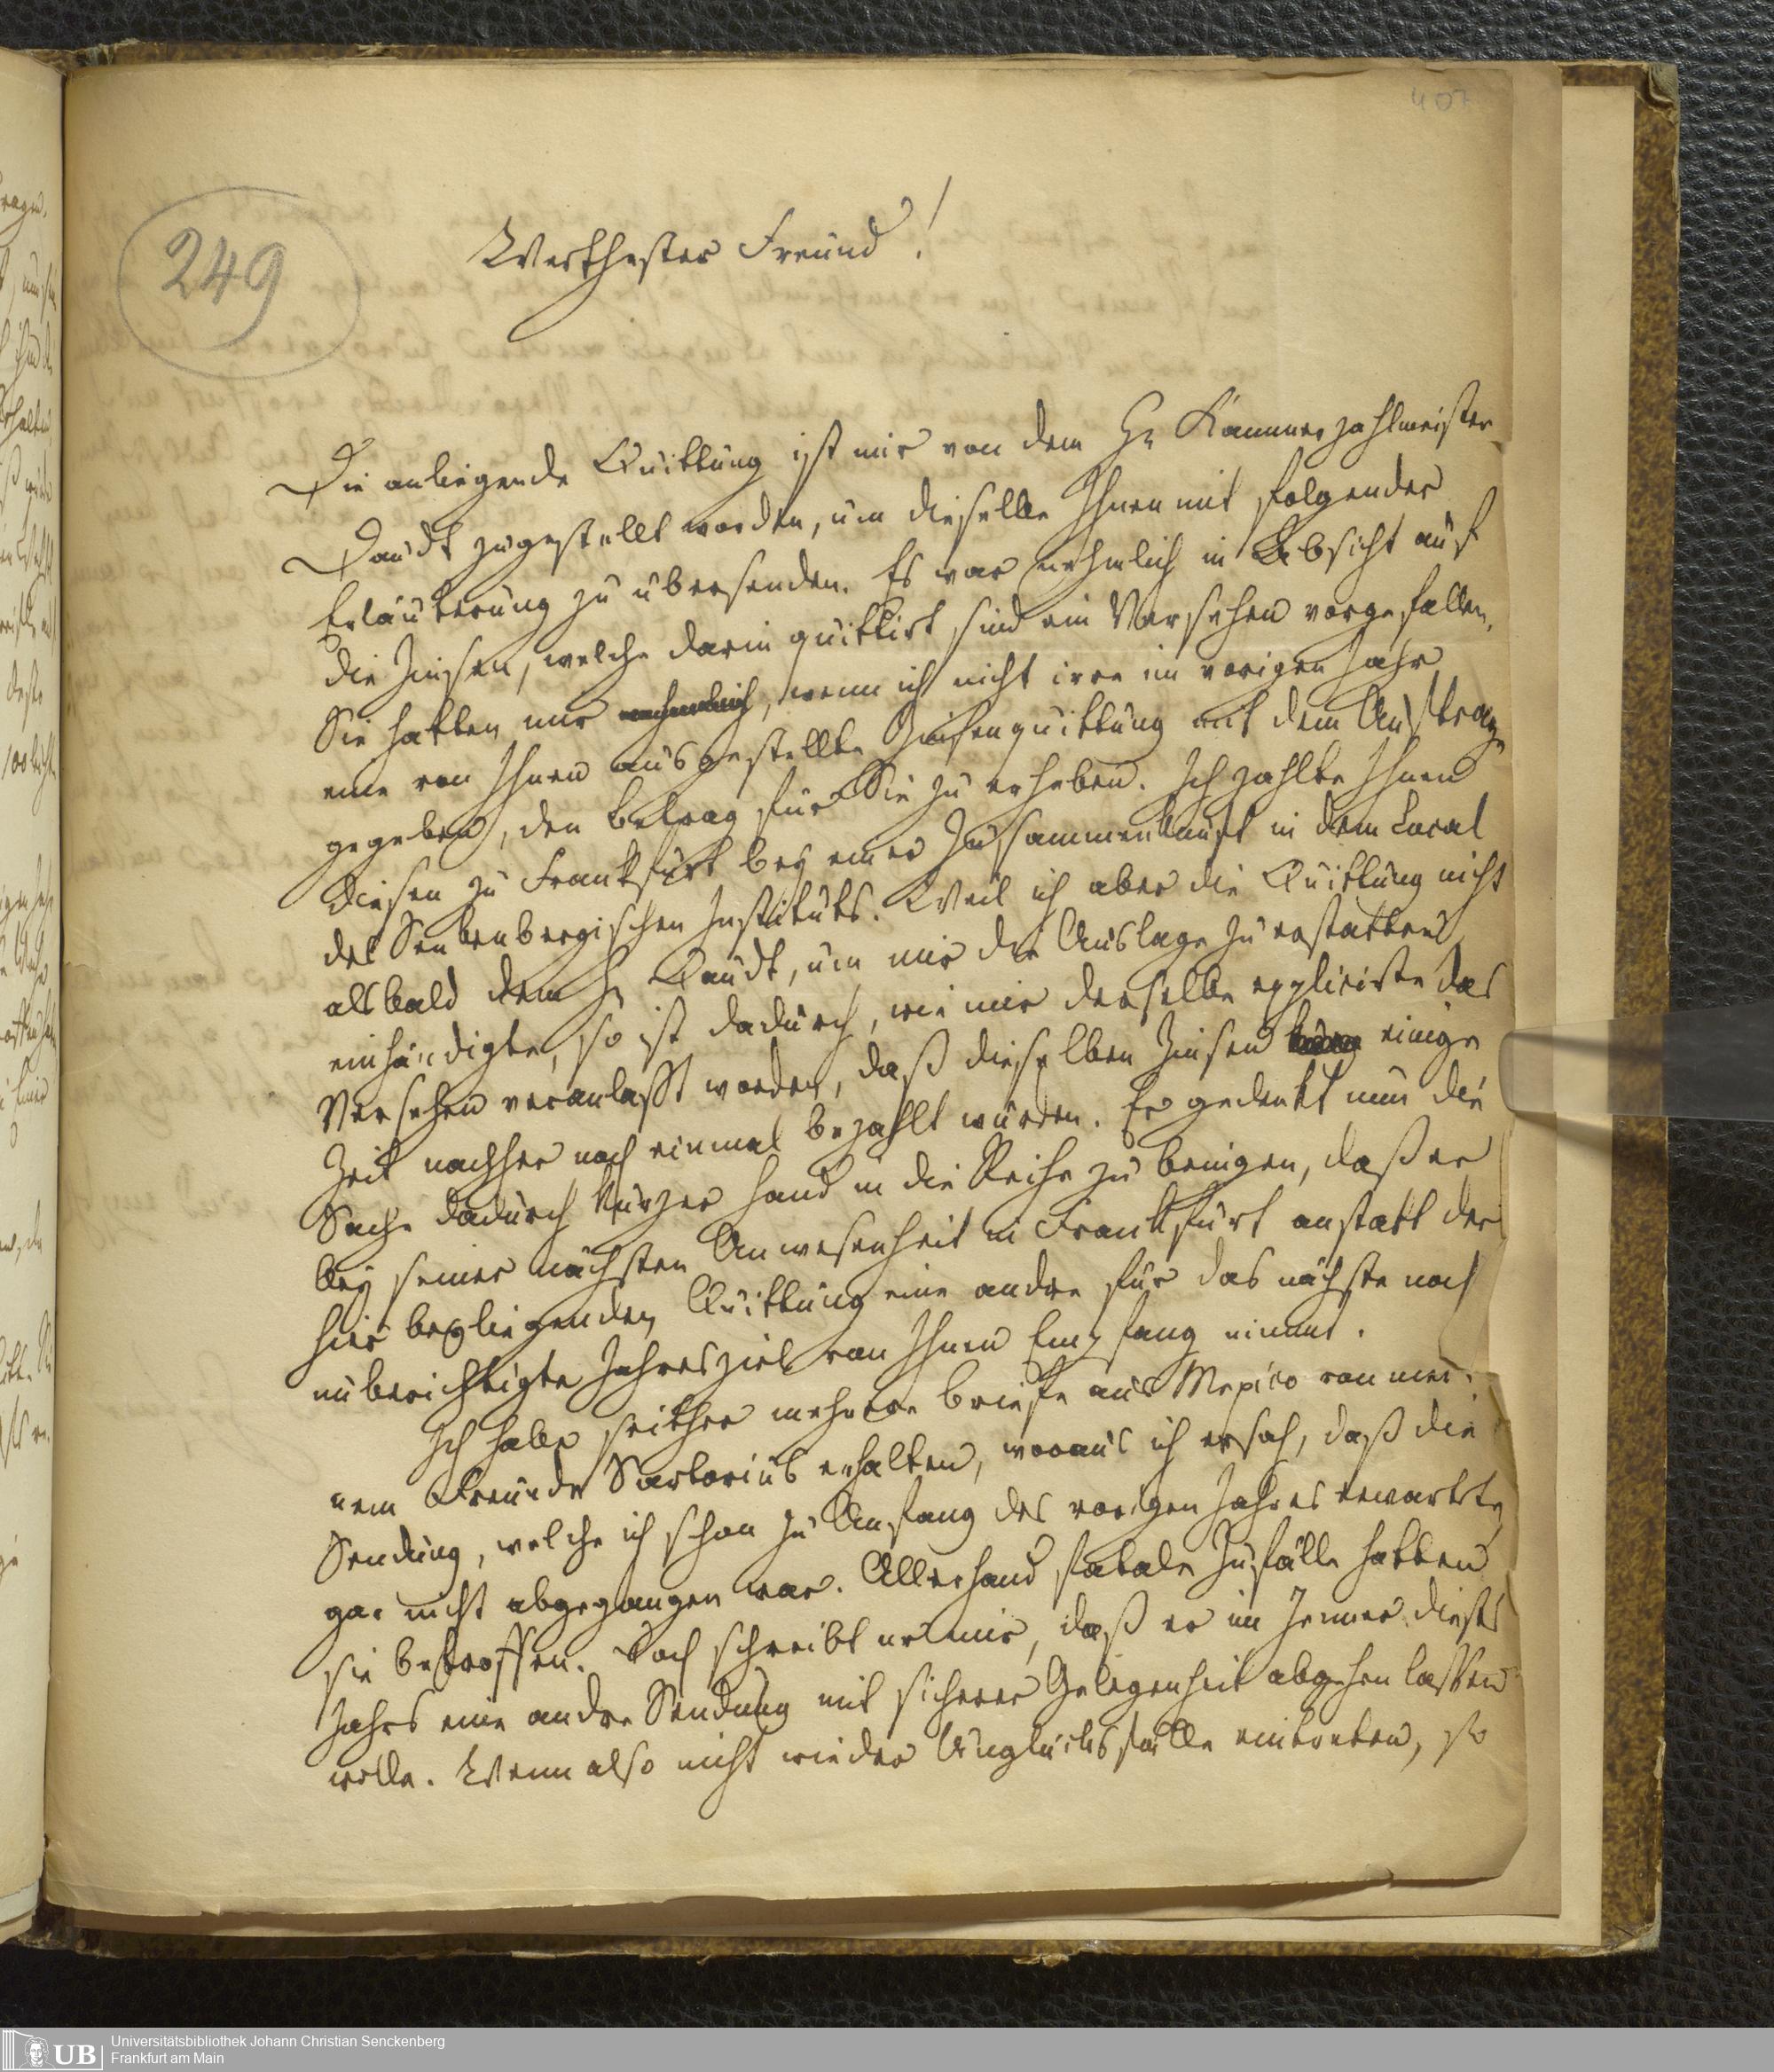 407
249
Werthester Freund!
Die anliegende Quittung ist mir von dem Hr Kammerzahlmeister
Daudt zugestellt worden, um dieselbe Ihnen mit folgender
Erläuterung zu übersenden. Es war nehmlich in Absicht auf
die Zinsen, welche darin quittirt sind ein Versehen vorgefallen.
Sie hatten mir, wenn ich nicht irre im vorigen Jahr
eine von Ihnen ausgestellte Zinsenquittung mit dem Auftrage
gegeben, den Betrag für Sie zu erheben. Ich zahlte Ihnen
diesen zu Frankfurt bey einer Zusammenkunft in dem Local
des Senkenbergischen Instituts. Weil ich aber die Quittung nicht
alsbald dem H Daudt, um mir die Auslage zu erstatten
einhändigte, so ist dadurch, wie mir derselbe explicirte das
Versehen veranlasst worden, daß dieselben Zinsen einige
Zeit nachher noch einmal bezahlt wurden. Er gedenkt nun die
Sache dadurch kurzer Hand in die Reihe zu bringen, daß er
bey seiner nächsten Anwesenheit in Frankfurt anstatt der
hier beyliegenden Quittung eine andre für das nächste noch
unberichtigte Jahresziel von Ihnen Empfang nimmt.
Ich habe seither mehrere Briefe aus Mexico von mei-
nem Freunde Sartorius erhalten, woraus ich ersah, daß die
Sendung, welche ich schon zu Anfang des vorigen Jahres erwartete
gar nicht abgegangen war. Allerhand fatale Zufälle hatten
sie betroffen. Doch schreibt er mir, daß er im Jenner dieses
Jahrs eine andre Sendung mit sicherer Gelegenheit abgehen lassen
wolle. Wenn also nicht wieder Unglücksfälle eintreten, so
UB Universitätsbibliothek Johann Christian Senckenberg
Frankfurt am Main